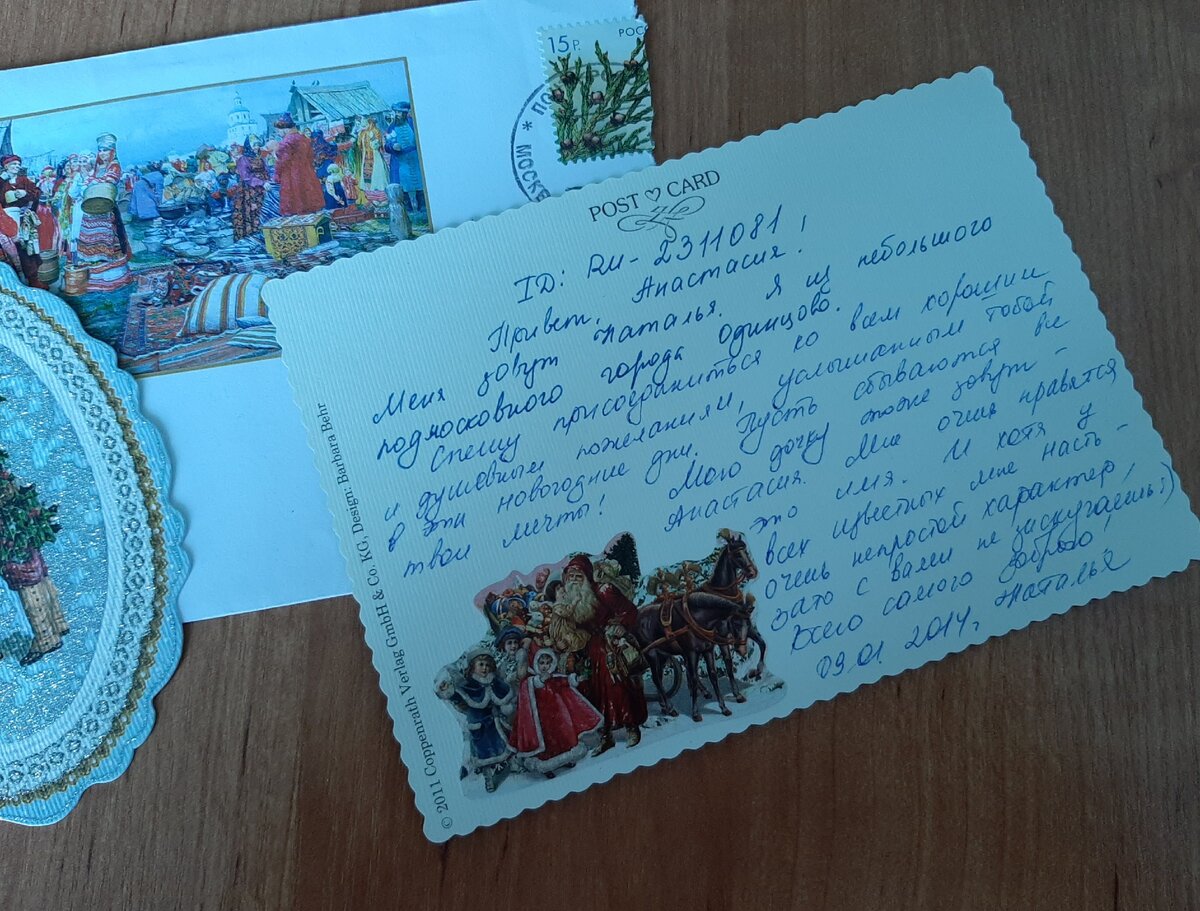 15 Р.
РОС
ПО
* МОСКВ
POST CARD
ID: RU-2311081,
Привет, Анастасия!
Меня зовут Наталья. Я из небольшого
подмосковного города Одинцово.
Спешу присоединиться ко всем хорошим
и душевным пожеланиям, услышанным тобой
в эти новогодние дни. Пусть сбываются все
твои мечты! Мою дочку тоже зовут -
Анастасия. Мне очень нравятся
это имя. И хотя у
всех известных мне Насть -
очень непростой характер,
зато с вами не заскучаешь:)
Всего самого доброго!
09.01.2014. Наталья
© 2011 Coppenrath Verlag GmbH & Co. KG, Design: Barbara Behr